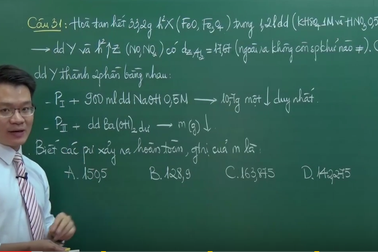 Câu 31: Hoà tan hết 33,2g h² X (FeO, Fe₃O₄) trong 1,2l dd (KHSO₄ 1M và HNO₃ 0,5
→ dd Y và h² ↑ Z (NO, NO₂) có d = 17,67 (ngoài ra không còn spkhử nào ≠). C
dd Y thành 2 phần bằng nhau:
- P_I + 900 ml dd NaOH 0,5N → 10,7g một ↓ duy nhất
- P_II + dd Ba(OH)₂ dư → m (g) ↓
Biết các pứ xảy ra hoàn toàn, gtrị của m là:
A. 150,5 B. 128,9 C. 163,875 D. 142,275